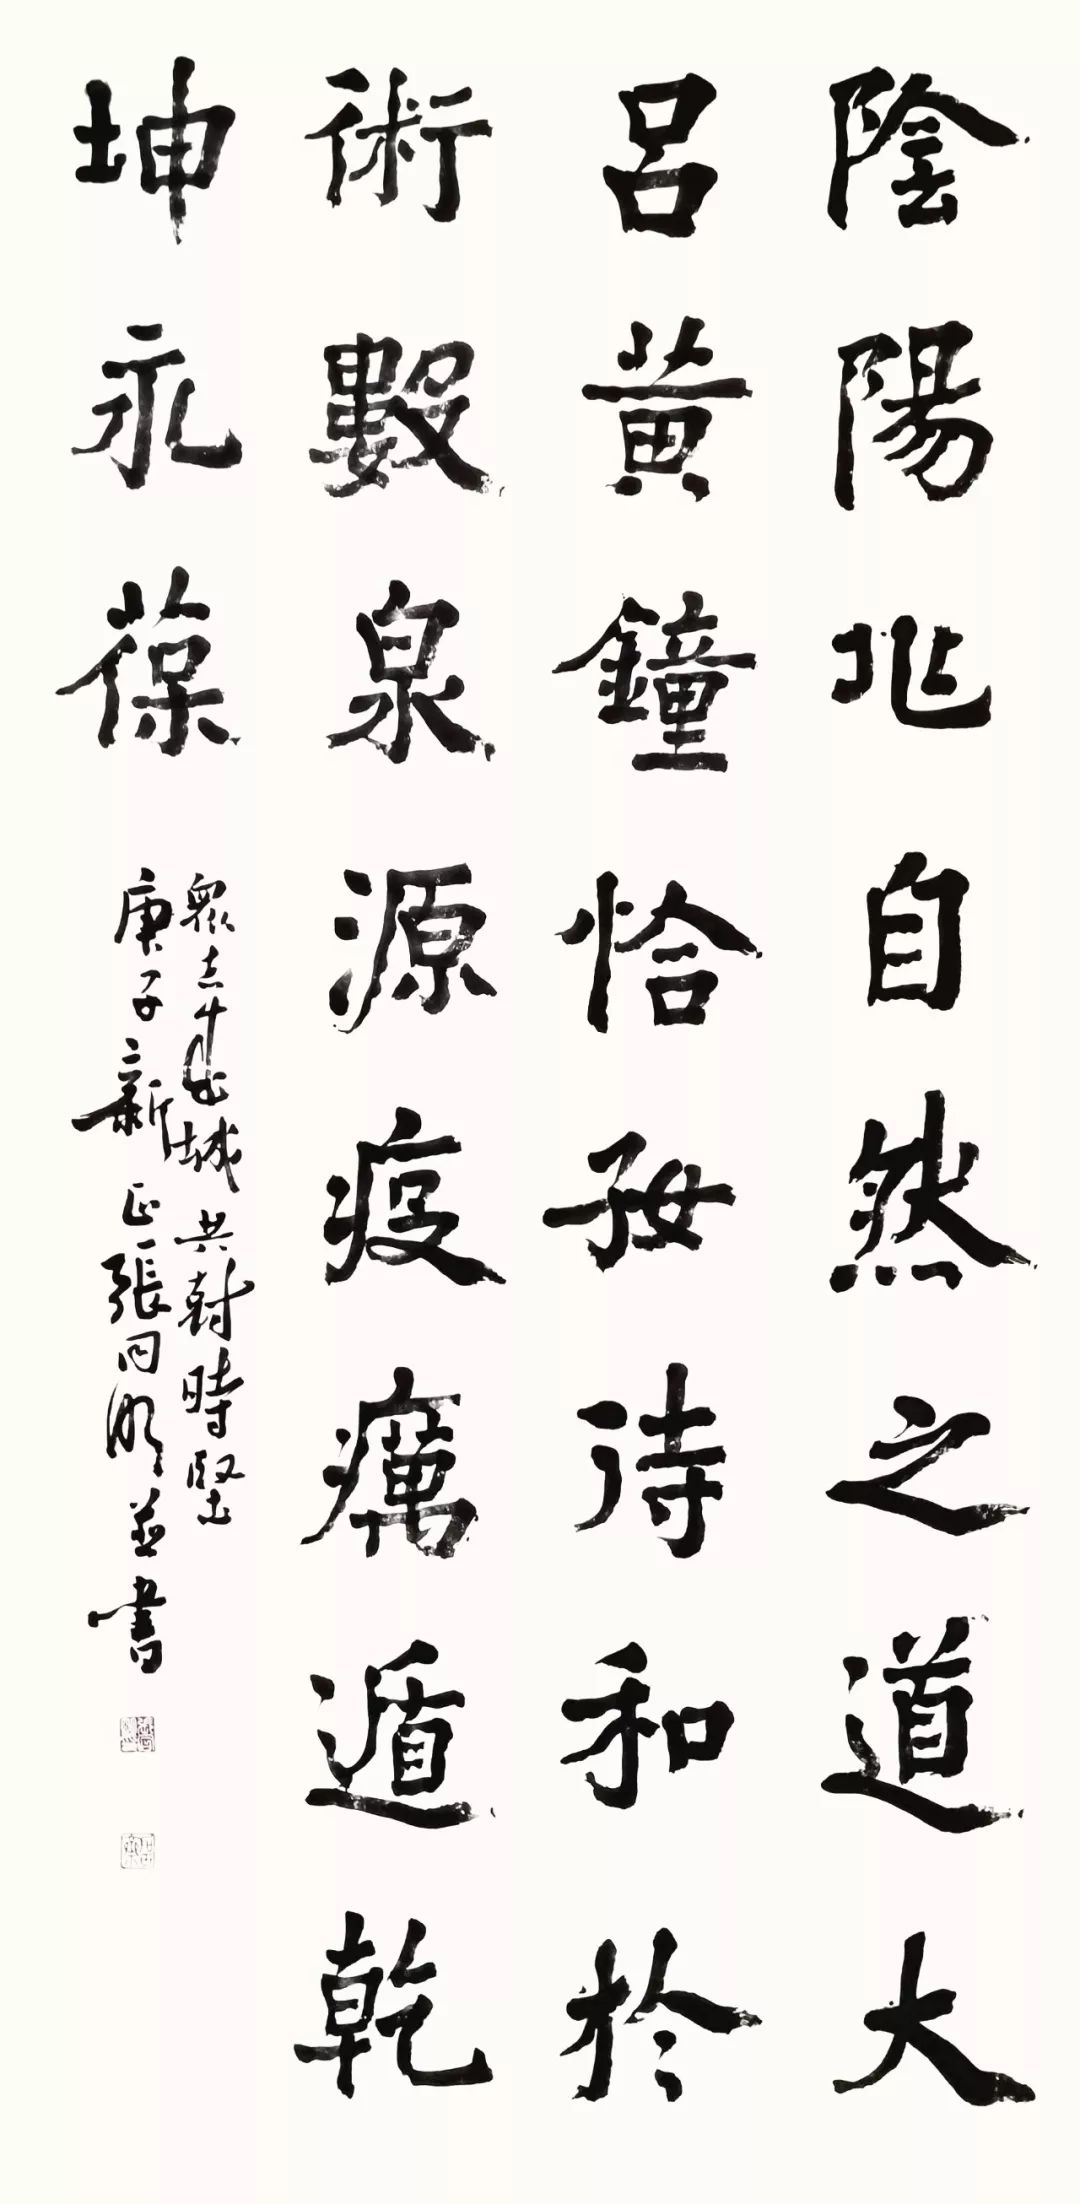 陰陽兆自然之道大
呂黃鐘恰好待和於
術數泉源疫癘遁乾
坤永葆
眾志成城共時
庚子新正張同並書